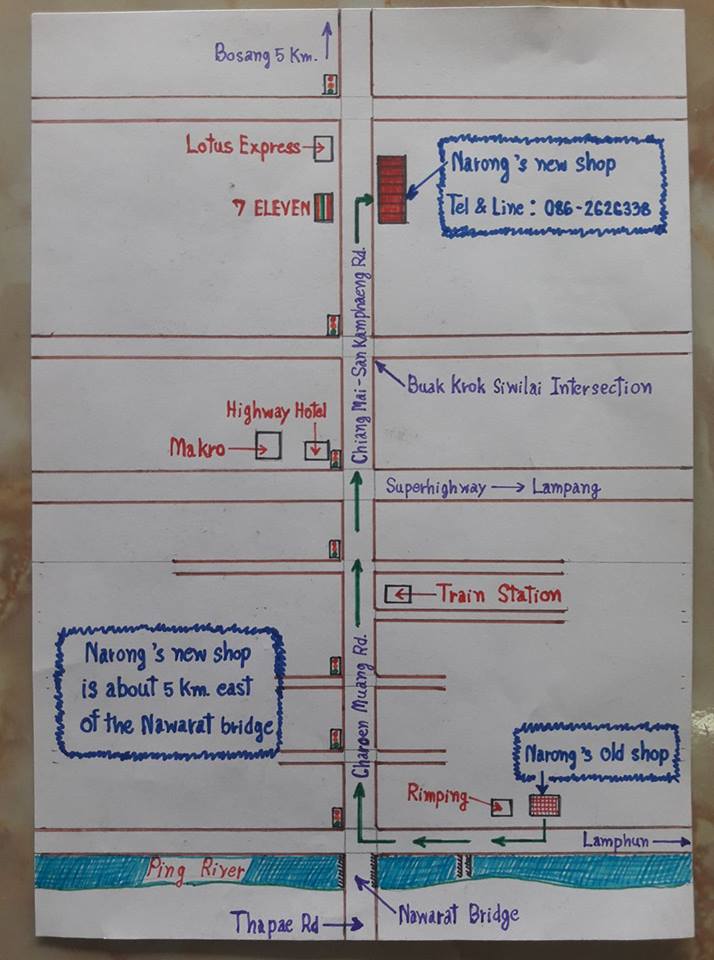 Bosang 5 Km.
Lotus Express
Narong's new shop
Tel & Line : 086-2626338
7 ELEVEN
Chiang Mai-San Kamphaeng Rd.
Buak Krok Siwilai Intersection
Highway Hotel
Makro
Superhighway → Lampang
Train Station
Narong's new shop
is about 5 Km. east
of the Nawarat bridge
Charoen Muang Rd.
Narong's old shop
Rimping
Lamphun
Ping River
Nawarat Bridge
Thapae Rd